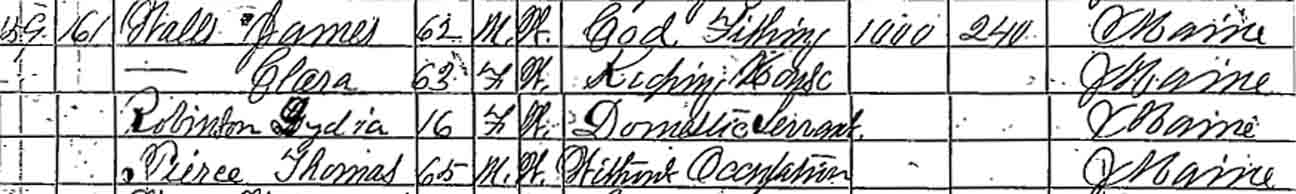 161 Walls James 62 M. W. Cod Fishing 1000 240 Maine
— Clara 63 F W. Keeping House Maine
Robinton Lydia 16 F W. Domestic Servant. Maine
Pierce Thomas 65 M. W. Without Occupation Maine